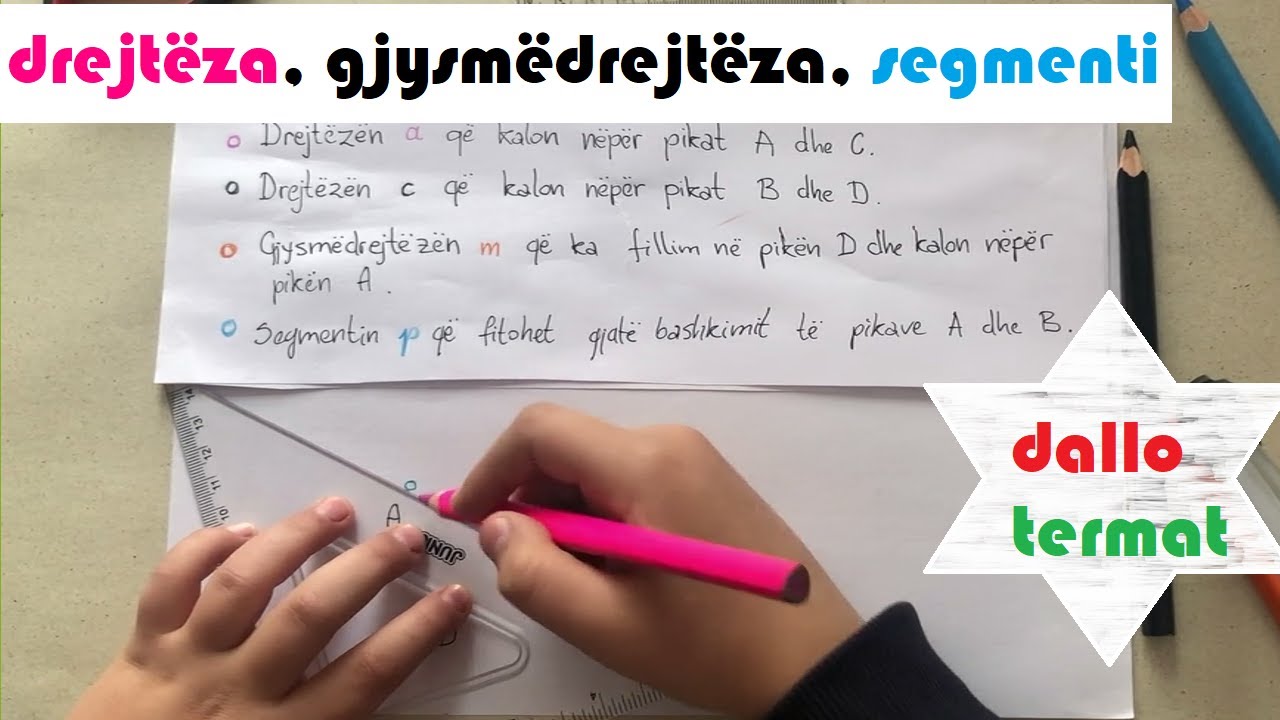 drejtëza, gjysmëdrejtëza, segmenti
Drejtëzën a që kalon nëpër pikat A dhe C.
Drejtëzën c që kalon nëpër pikat B dhe D.
Gjysmëdrejtëzën m që ka fillim në pikën D dhe kalon nëpër
pikën A.
Segmentin p që fitohet gjatë bashkimit të pikave A dhe B.
dallo
termat
14
13
12
11
10
A